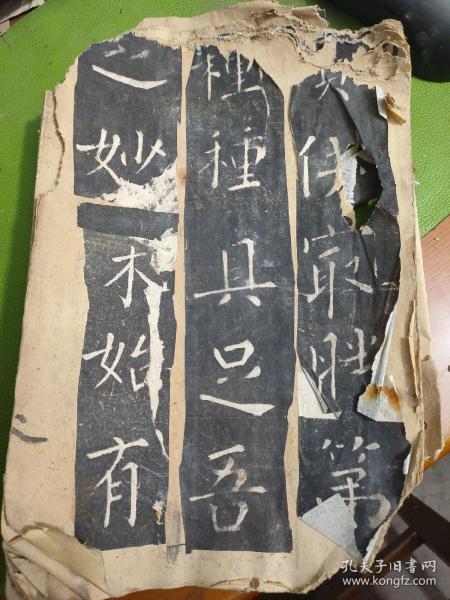 㝡勝第
種種具足吾
之妙未始有
孔夫子旧书网
www.kongfz.com